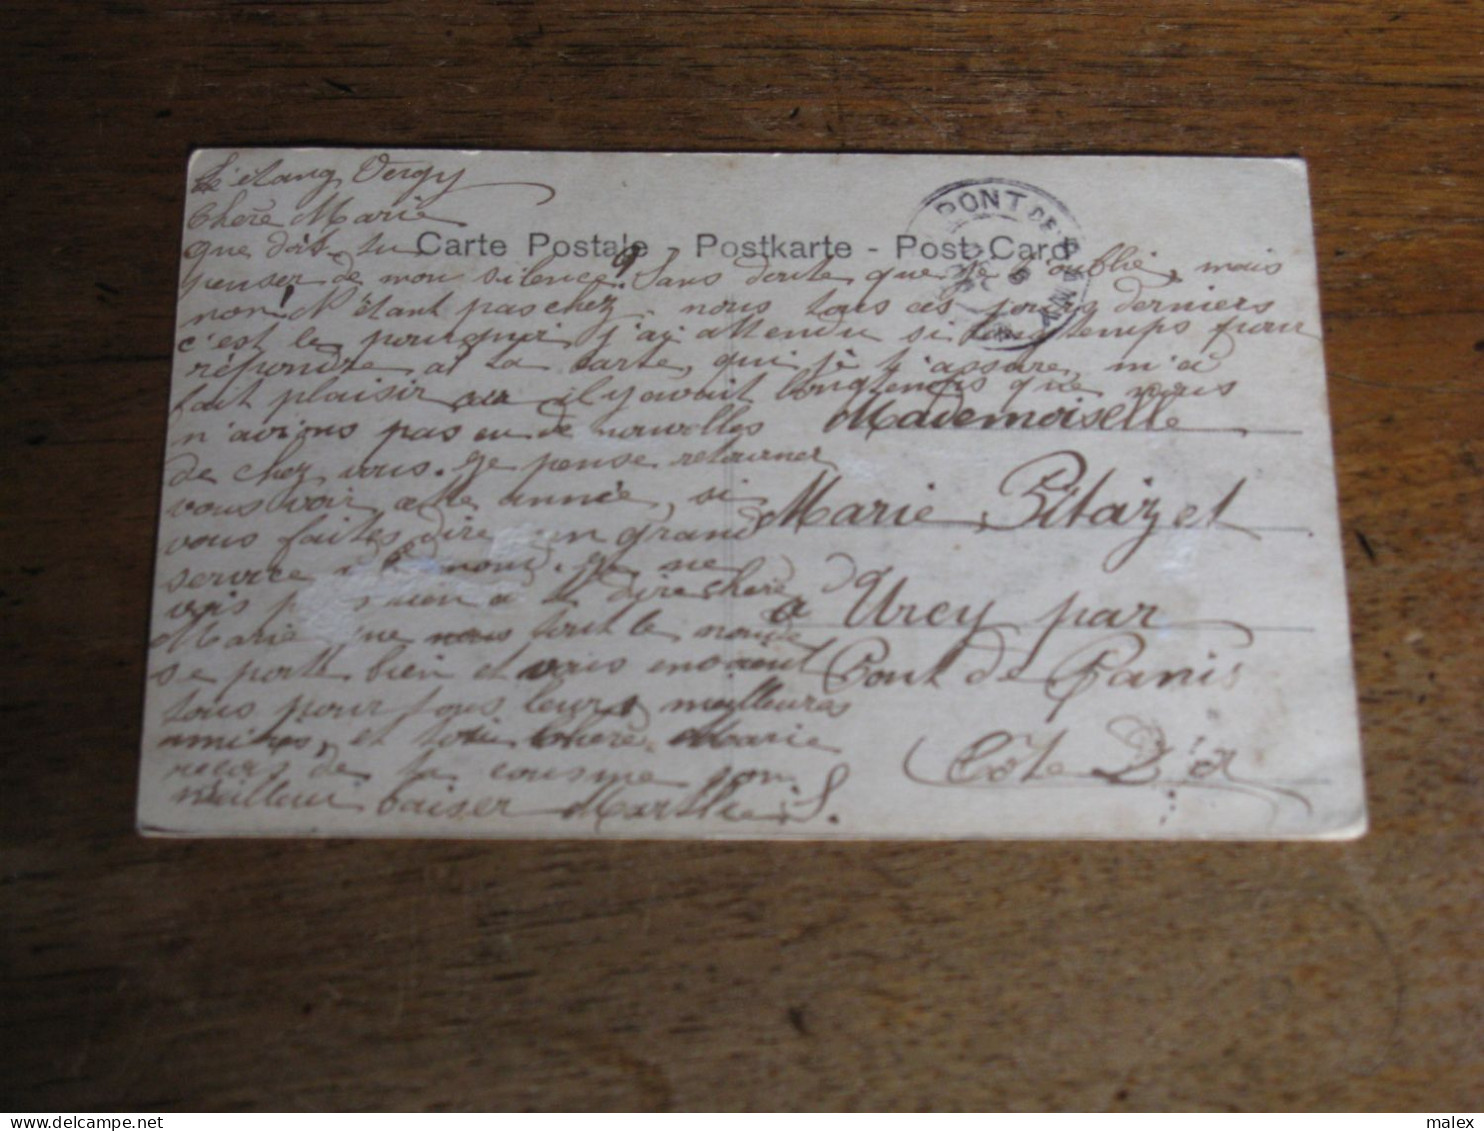 L'étang Vergy
Chère Marie
Que dois-tu
Carte Postale - Postkarte - Post-Card
PONT DE PANY
penser de mon silence? Sans doute que je t'oublie, mais
non! N'étant pas chez nous tous ces jours derniers
c'est le pourquoi j'ai attendu si longtemps pour
répondre à ta carte, qui je t'assure, m'a
fait plaisir car il y avait longtemps que nous
n'avions pas eu de nouvelles
de chez vous. Je pense retourner
vous voir cette année, si
vous faites dire un grand
service . Je ne
vois rien à te dire chère
Marie que nous tout le monde
se porte bien et vous envoient
tous pour tous leurs meilleures
amitiés, et toi chère Marie
reçois de ta cousine son
meilleur baiser Marthe S.
Mademoiselle
Marie Pitaizet
à Urcy par
Pont de Panis
Côte D'or
malex